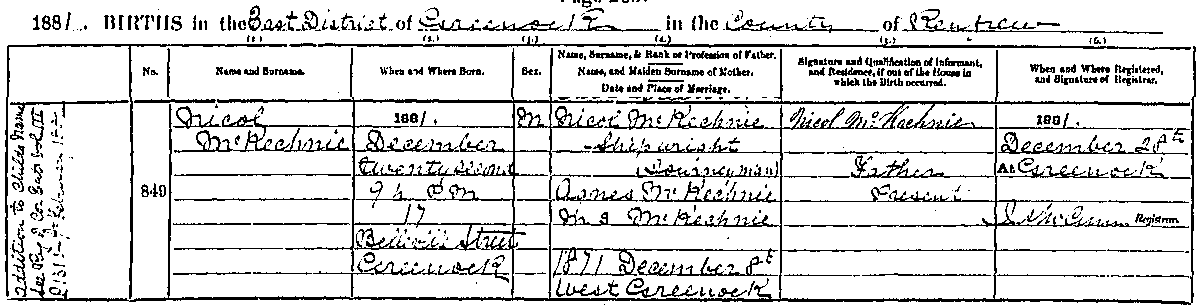 1881. BIRTHS in the East District of Greenock in the County of Renfrew
(1.) (2.) (3.) (4.) (5.) (6.)
No. Name and Surname. When and Where Born. Sex. Name, Surname, & Rank or Profession of Father. Name, and Maiden Surname of Mother. Date and Place of Marriage. Signature and Qualification of Informant, and Residence, if out of the House in which the Birth occurred. When and Where Registered, and Signature of Registrar.
Nicol 1881. M Nicol McKechnie Nicol McKechnie 1881.
McKechnie December Shipwright December 28th
twenty second (Journeyman) Father At Greenock
849 9h P M Agnes McKechnie Present
17 M S McKechnie Registrar.
Belleville Street
Greenock 1871 December 8th
West Greenock
addition to Childs Name
See Reg of Cor